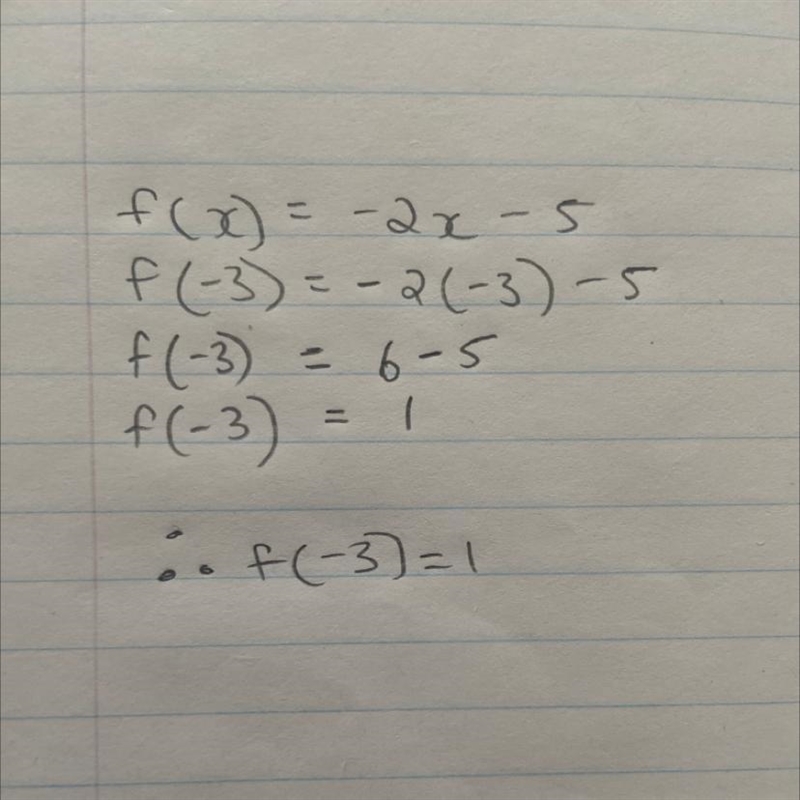 f(x) = -2x - 5
f(-3) = -2(-3) - 5
f(-3) = 6 - 5
f(-3) = 1
∴ f(-3) = 1